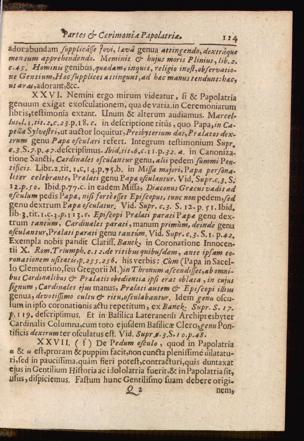 Partes & Cerimoniæ Papolatriæ. 124
adorabundam supplicâsse Jovi, lævâ genua attingendo, dextrâque
mensam apprehendendo. Meminit & hujus moris Plinius, lib. 2.
c. 45. Hominis genibus, quædam, inquit, religio inest, observatio-
ne Gentium. Hæc supplices attingunt, ad hæc manus tendunt: hæc,
ut aras, adorant, &c.
XXVI. Nemini ergo mirum videatur, si & Papolatria
genuum exigat exosculationem, qua de varia in Ceremoniarum
libris, testimonia extant. Unum & alterum audiamus. Marcel-
in descriptione ritûs, quo Papa, in Ca-
pella Sylvestri, ut auctor loquitur, Presbyterum dat, Prælatos dex-
trum genu Papæ osculari refert. Integrum testimonium Supr.
descripsimus. in Canoniza-
tione Sancti, Cardinales osculantur genu, alii pedem summi Pon-
tificis. in Missa majori, Papa persona-
liter celebrante, Prælati genu Papæ osculantur. Vid. Supr. c. 3. S.
12. p. 50. Ibid. p. 77. c. in eadem Missa, Diaconus Græcus vadit ad
osculum pedis Papæ, nisi fortè esset Episcopus, tunc non pedem, sed
genu dextrum Papæ osculatur. Vid. Supr. c. 3. S. 12. p. 51. Ibid.
lib. 3. tit. 1. c. 3. p. 113. c. Episcopi Prælati parati Papæ genu dex-
trum tantùm, Cardinales parati, manum primùm, deinde genu
osculantur, Prælati parati genu tantùm. Vid. Supr. c. 3. S. 1. p. 42.
Exempla nobis pandit Clariss. Banck, in Coronatione Innocen-
tii X. Rom. Triumph. c. 12. de ritibus quibusdam, ante ipsam co-
ronationem usitatis. p. 255. 256. his verbis: Cùm (Papa in Sacel-
lo Clementino, seu Gregorii M.) in Thronum ascendisset, ab omni-
bus Cardinalibus & Prælatis obedientia ipsi erat oblata, in cujus
signum, Cardinales ejus manus, Prælati autem & Episcopi ibus
genua, devotissimo cultu & ritu, osculabantur. Idem genu oscu-
lum in ipso coronationis actu repetitum, ex Banck. Supr. S. 17.
p. 119. descripsimus. Et in Basilica Lateranensi Archipresbyter
Cardinalis Columna, cum toto ejusdem Basilicæ Clero, genu Pon-
tificis dextrum ter osculatus est. Vid. Supr. c. 3. S. 10. p. 48.
XXVII. (f) De Pedum osculo, quod in Papolatria
α & ω est, proram & puppim facit, non cuncta plenissimè dilatatu-
ri, sed in paucissima, quàm fieri potest, contracturi, quis duntaxat
ejus in Gentilium Historia ac idololatria fuerit, & in Papolatria sit,
usus, dispiciemus. Fastum hunc Gentilismo suam debere origi-
Q 2 nem,